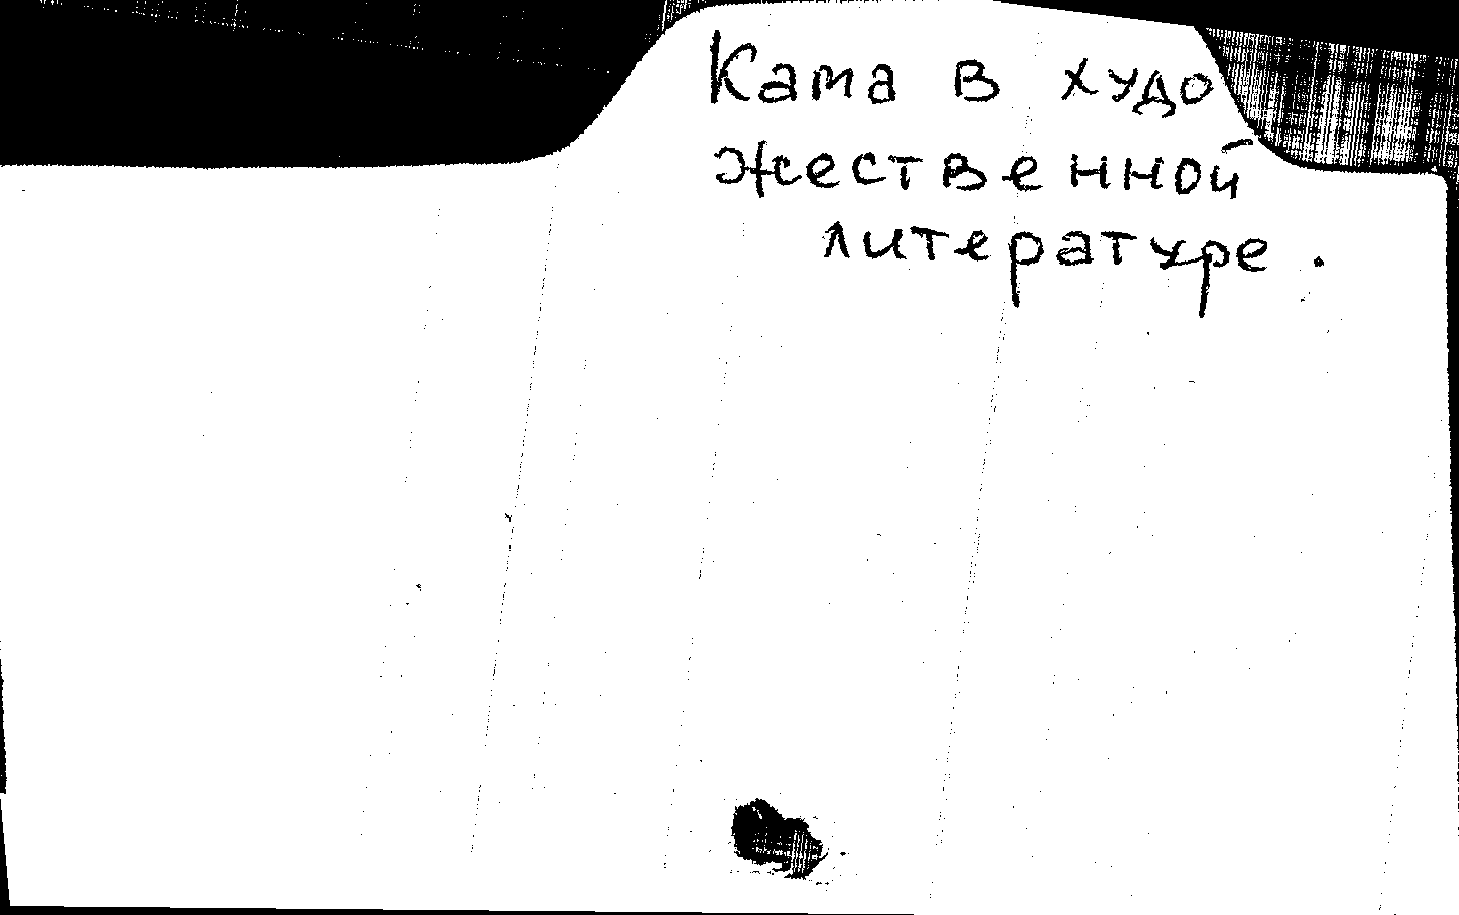 Кама в худо
жественной
литературе.